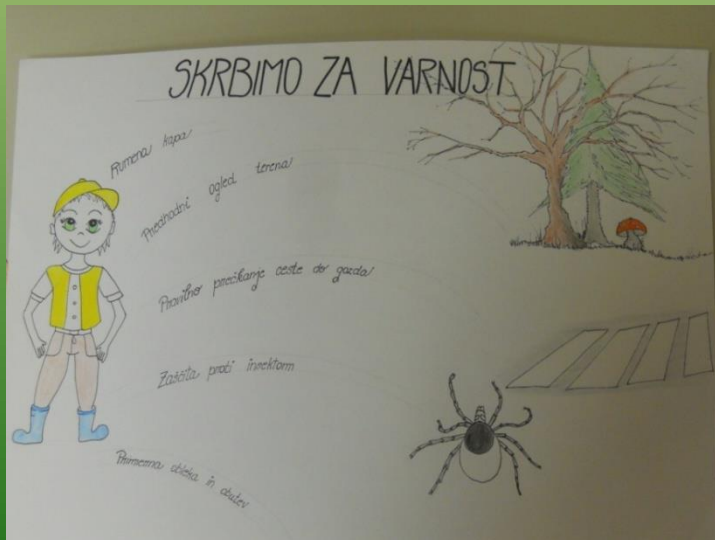 SKRBIMO ZA VARNOST
Rumena kapa
Predhodni ogled terena
Pravilno prečkanje ceste do gozda
Zaščita proti insektom
Primerna obleka in obutev